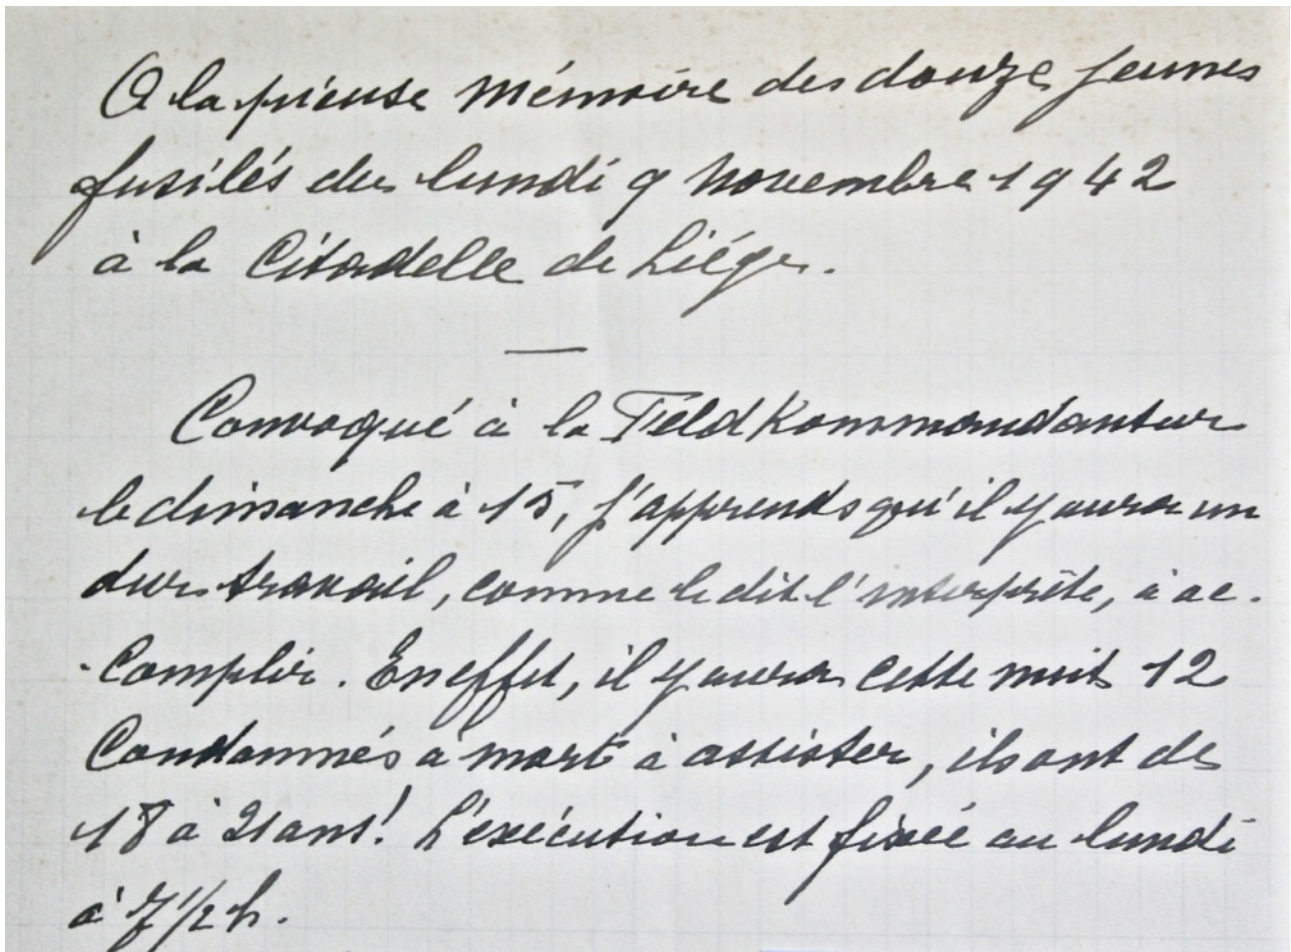 A la pieuse mémoire des douze jeunes
fusilés du lundi 9 novembre 1942
à la Citadelle de Liége.
—
Convoqué à la Féldkommandantur
le dimanche à 15, j'apprends qu'il y aura un
dur travail, comme le dit l'interprète, à ac-
-complir. En effet, il y aura cette nuit 12
Condamnés à mort à assister, ils ont de
18 à 21 ans! L'exécution est fixée au lundi
à 7 1/2 h.